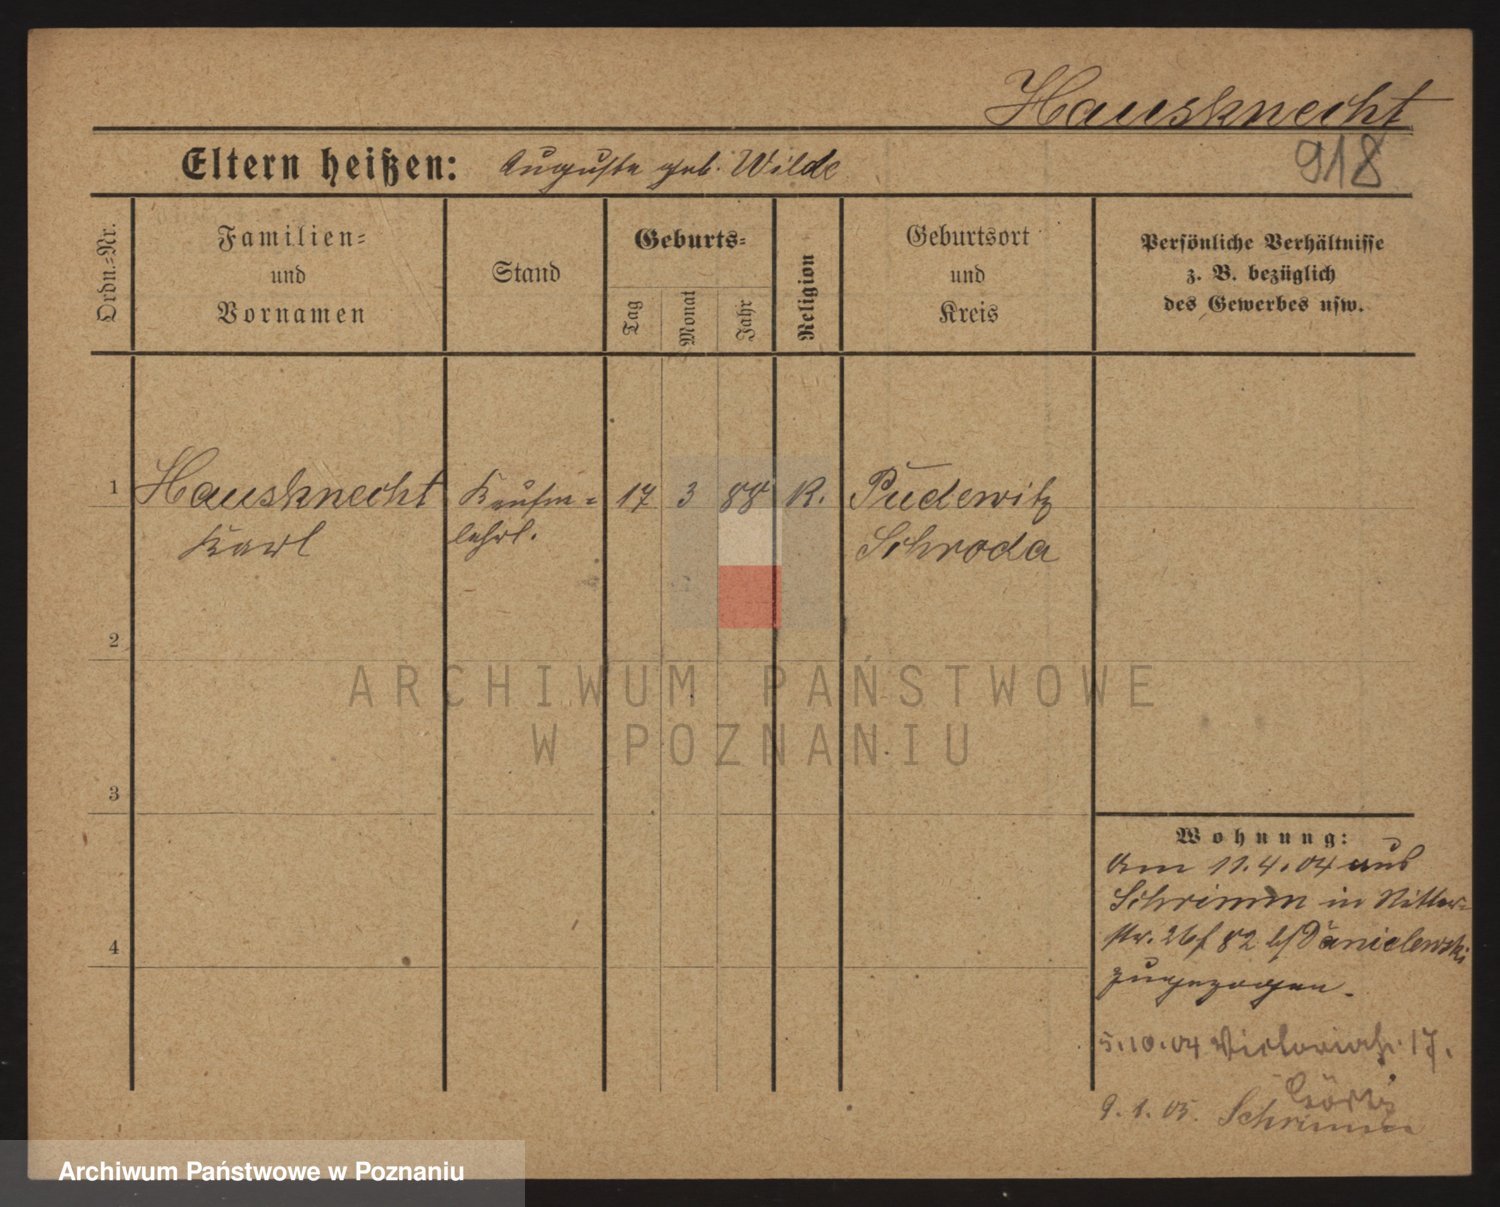 Hausknecht
918
Eltern heißen: Auguste geb. Wilde
Ordn.=Nr.
Familien=
und
Vornamen
Stand
Geburts=
Tag
Monat
Jahr
Religion
Geburtsort
und
Kreis
Persönliche Verhältnisse
z. B. bezüglich
des Gewerbes usw.
1 Hausknecht Kaufm= 17 3 88 K. Pudewitz
Karl lehrl. Schroda
2
3
4
Wohnung:
Am 11.4.04 aus
Schrimm in Ritter=
str. 26/ 82 b/ Danielewski
zugezogen.
5.10.04 Victoriastr. 17.
9.1.05. Schrimm
ARCHIWUM PAŃSTWOWE
W POZNANIU
Archiwum Państwowe w Poznaniu